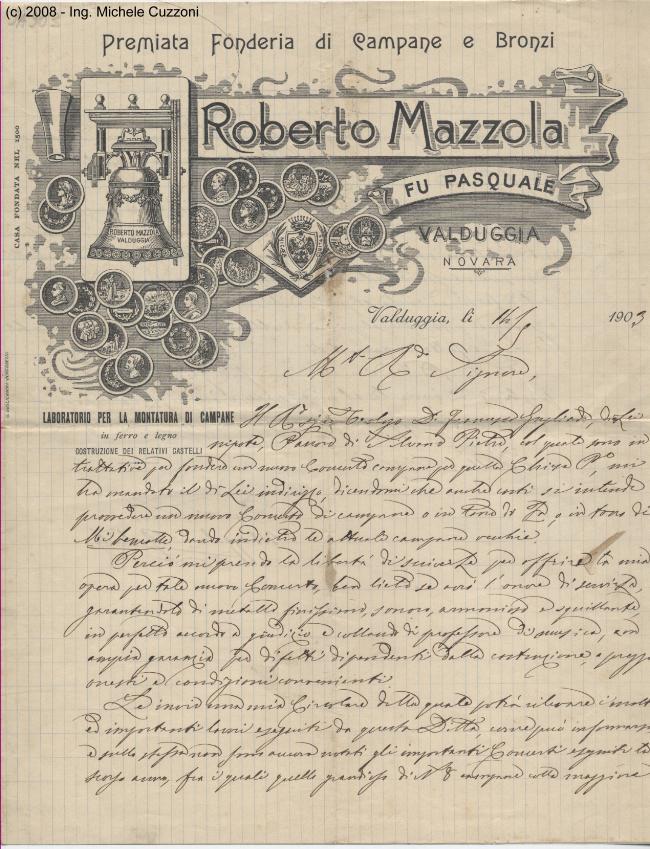 (c) 2008 - Ing. Michele Cuzzoni
Premiata Fonderia di Campane e Bronzi
Roberto Mazzola
FU PASQUALE
VALDUGGIA
NOVARA
CASA FONDATA NEL 1500
ROBERTO MAZZOLA
VALDUGGIA
Valduggia, li 14/5 1903
M.to R.do Signore,
LABORATORIO PER LA MONTATURA DI CAMPANE
in ferro e legno
COSTRUZIONE DEI RELATIVI CASTELLI
Il Teologo D. Francesco di Lei
nipote, di Pietre, col quale sono in
trattative per fondere un nuovo Concerto campane per quella Chiesa mi
ha mandato il di Lei indirizzo, dicendomi che anche costì si intende
provvedere un nuovo Concerto di campane o in tono di o in tono di
Mi bemolle dando indietro le attuali campane vecchie.
Perciò mi prendo la libertà di scriverle per offrirle la mia
opera per tale nuovo Concerto, ben lieto se avrò l'onore di servirla,
garantendolo di metallo finissimo, sonoro, armonioso e squillante,
in perfetto accordo a giudizio e collaudo di professore di musica, con
ampia garanzia per difetti dipendenti dalla costruzione, a prezzi
onesti e condizioni convenienti.
Le invio una mia Circolare dalla quale potrà rilevare i molti
ed importanti lavori eseguiti da questa Ditta, come può informarsi
e sulla stessa non sono ancora notati gli importanti Concerti eseguiti lo
scorso anno, fra i quali quello grandioso di N° 8 campane colla maggiore